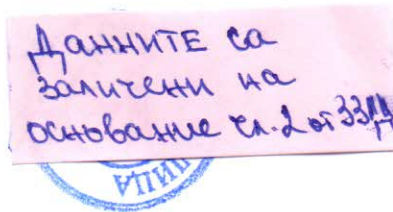 Данните са
заличени на
основание чл.2 от ЗЗЛД